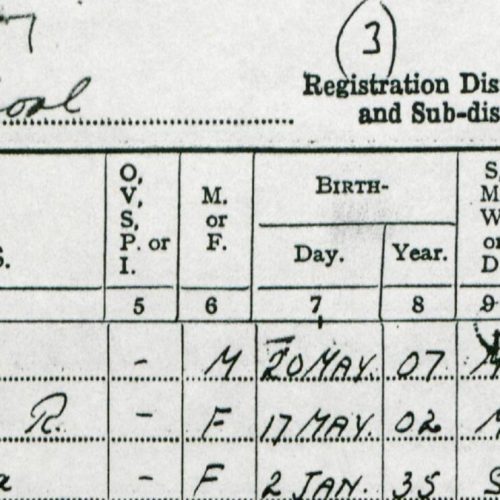 3
Registration Dis
and Sub-dis
O, V, S, P. or I.
M. or F.
BIRTH-
Day.
Year.
S, M, W, or D.
5 6 7 8 9
- M 20 MAY. 07 M
R. - F 17 MAY. 02 M
a - F 2 JAN. 35 S